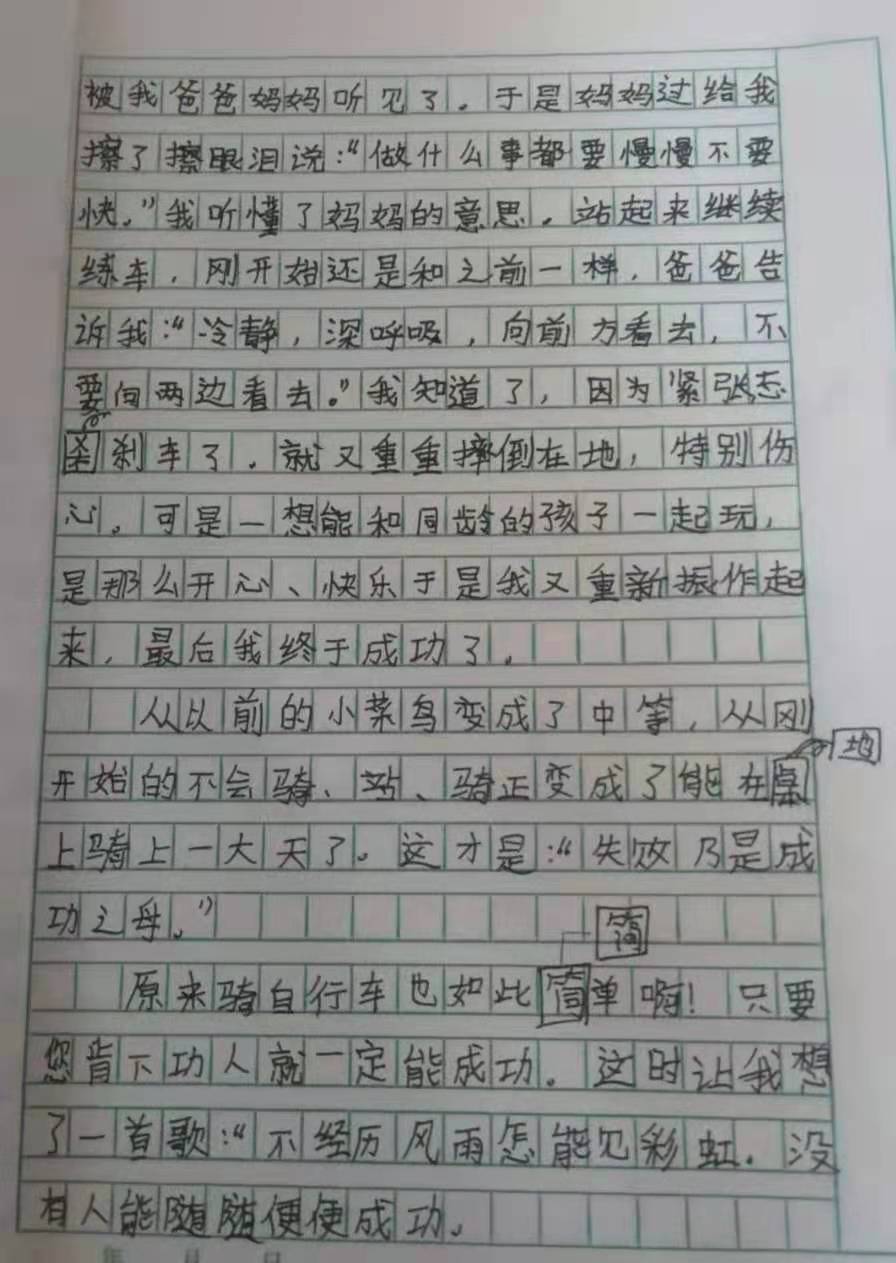 被我爸爸妈妈听见了。于是妈妈过给我
擦了擦眼泪说：“做什么事都要慢慢不要
快。”我听懂了妈妈的意思。站起来继续
练车，刚开始还是和之前一样，爸爸告
诉我：“冷静，深呼吸，向前方看去，不
要向两边看去。”我知道了，因为紧张忘
刹车了。就又重重摔倒在地，特别伤
心。可是一想能和同龄的孩子一起玩，
是那么开心、快乐于是我又重新振作起
来，最后我终于成功了。
从以前的小菜鸟变成了中等，从刚
地
开始的不会骑、站、骑正变成了能在
上骑上一大天了。这才是：“失败乃是成
功之母。”
简
原来骑自行车也如此简单啊！只要
您肯下功人就一定能成功。这时让我想
了一首歌：“不经历风雨怎能见彩虹．没
有人能随随便便成功。
年 月 日